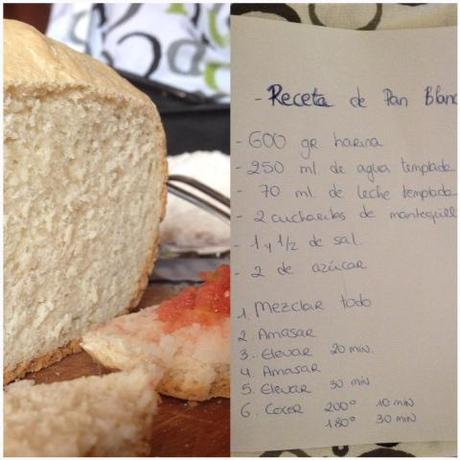 - Receta de Pan Blanc
- 600 gr harina
- 250 ml. de agua templada
- 70 ml. de leche templada
- 2 cucharitas de mantequill
- 1 y 1/2 de sal.
- 2 de azúcar
1. Mezclar todo
2. Amasar
3. Elevar 20 min.
4. Amasar
5. Elevar 30 min
6. Cocer 200º 10 min
180º 30 min